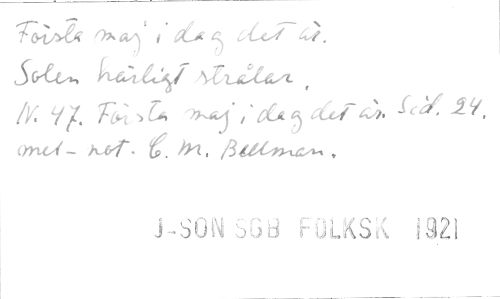 Första maj i dag det är.
Solen härligt strålar.
N. 47. Första maj i dag det är. Sid. 24.
mel-not. C. M. Bellman.
J-SON SGB FOLKSK 1921